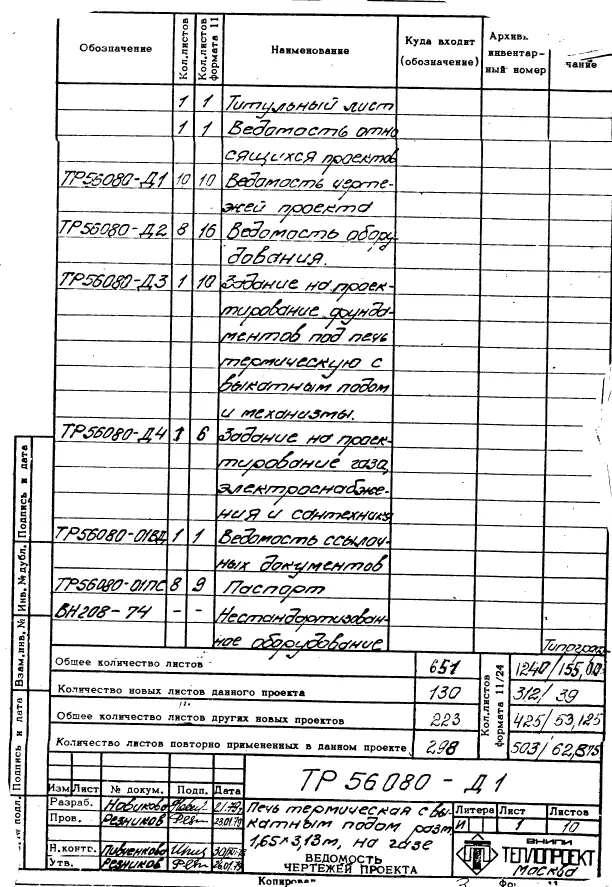 Обозначение Кол.листов Кол.листов формата 11 Наименование Куда входит (обозначение) Архивн. инвентарный номер чание
1 1 Титульный лист
1 1 Ведомость отно
сящихся проектов
ТР56080-Д1 10 10 Ведомость черте-
жей проекта
ТР56080-Д2 8 16 Ведомость обору-
дования.
ТР56080-Д3 1 10 Задание на проек-
тирование фунда-
ментов под печь
термическую с
выкатным подом
и механизмы.
ТР56080-Д4 1 6 Задание на проек-
тирование газа,
электроснабже-
ния и сантехника
ТР56080-01ВД 1 1 Ведомость ссылоч-
ных документов
ТР56080-01ПС 8 9 Паспорт
ВН208-74 - - Нестандартизован-
ное оборудование
Общее количество листов 651 Кол.листов формата 11/24 1240/155,00
Количество новых листов данного проекта 130 312/39
Общее количество листов других новых проектов 223 425/53,125
Количество листов повторно примененных в данном проекте 298 503/62,875
Подпись и дата
Инв.№дубл.
Взам.инв.№
Подпись и дата
подл.
ТР 56080-Д1
Изм Лист № докум. Подп. Дата
Разраб. Новикова
Пров. Резников 23.01.79
Н.контр. Пивненкова
Утв. Резников 26.01.79
Печь термическая с вы-
катным подом разм.
1,65×3,13м, на газе
ВЕДОМОСТЬ
ЧЕРТЕЖЕЙ ПРОЕКТА
Литера Лист Листов
И 1 10
ВНИПИ
ТЕПЛОПРОЕКТ
Москва
Копировал